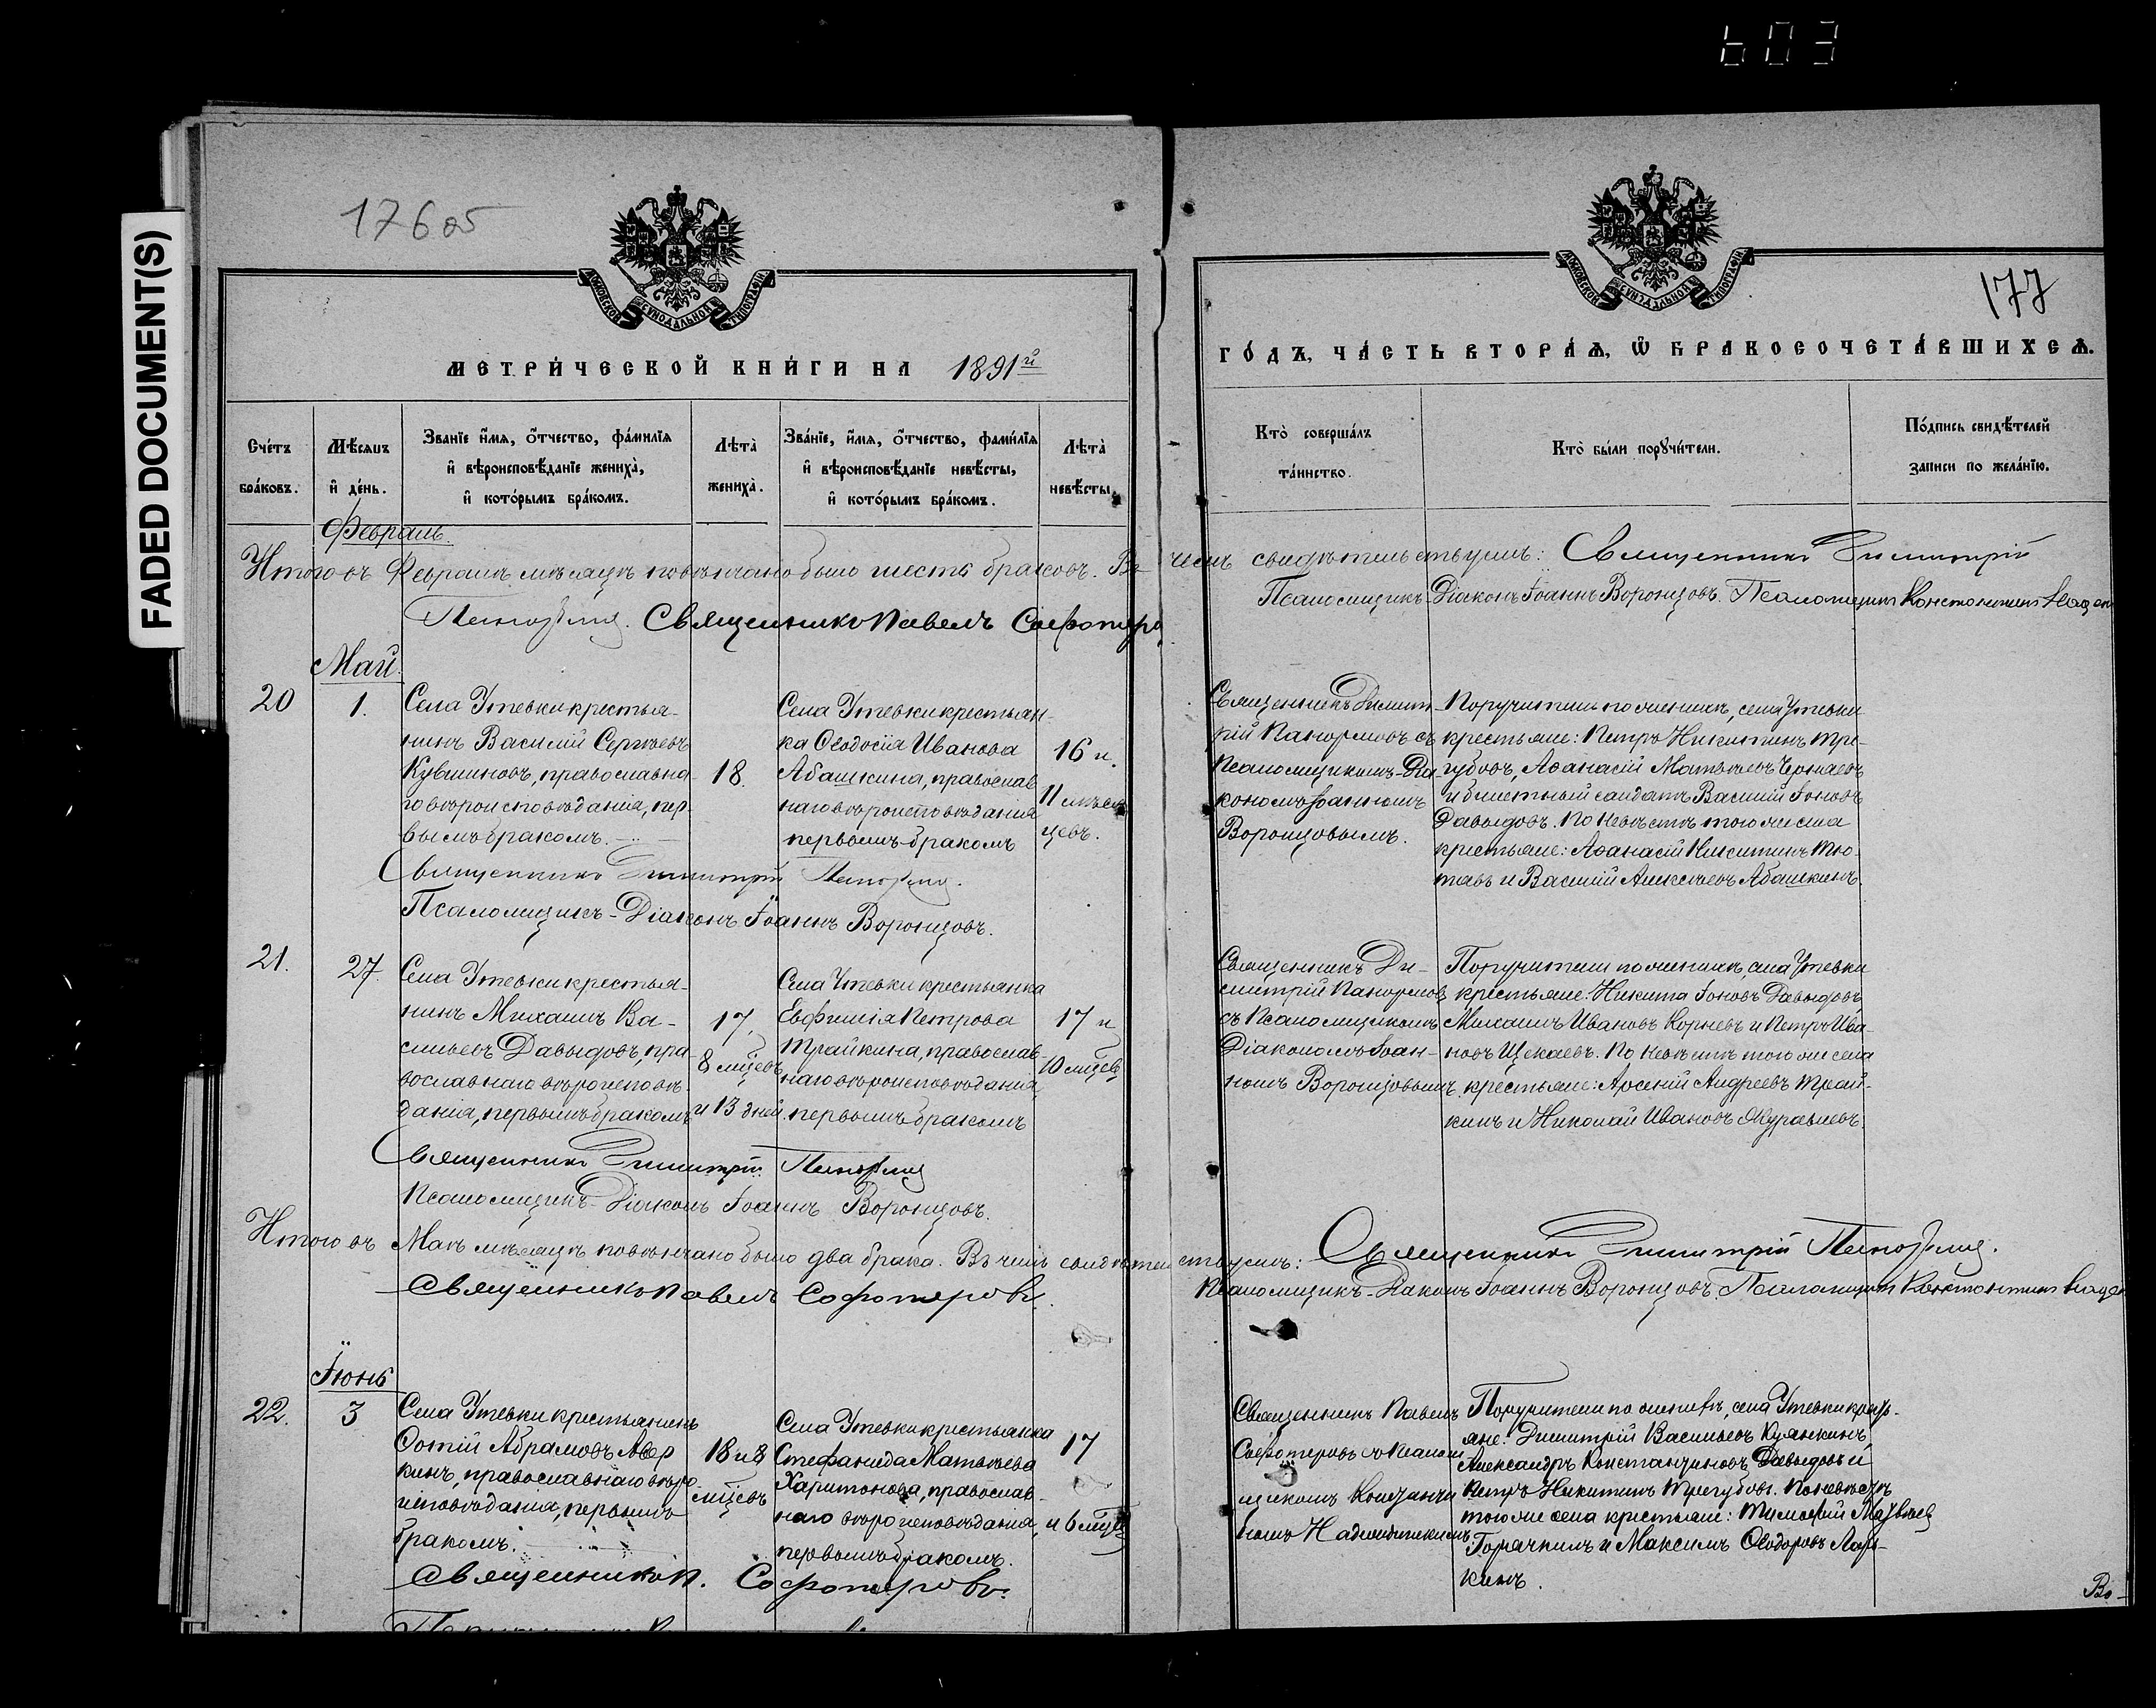 603
FADED DOCUMENT(S)
17605
177
МОСКОВСКОЙ СѴНОДАЛЬНОЙ ТИПОГРАФІИ
МОСКОВСКОЙ СѴНОДАЛЬНОЙ ТИПОГРАФІИ
МЕТРИ́ЧЕСКОЙ КНИ́ГИ НА 1891й
ГО́ДЪ, ЧА́СТЬ ВТОРА́Ѧ, Ѽ БРАКОСОЧЕТА́ВШИХСѦ.
Сче́тъ бра́ковъ.
Мѣ́сѧцъ и҆ де́нь.
Зва́нїе и҆́мѧ, ѻ҆́тчество, фамѝлїѧ и҆ вѣроисповѣ́данїе жениха̀, и҆ кото́рымъ бра́комъ.
Лѣта̀ жениха̀.
Зва́нїе, и҆́мѧ, ѻ҆́тчество, фами́лїѧ и҆ вѣроисповѣ́данїе невѣ́сты, и҆ кото́рымъ бра́комъ.
Лѣта̀ невѣ́сты.
Кто̀ соверша́лъ та́инство.
Кто̀ бы́ли порꙋчи́тели.
По́дпись свидѣ́телей записи по жела́нїю.
Февраль.
Итого въ Февралѣ мѣсяцѣ повѣнчано было шесть браковъ. Въ чемъ свидѣтельствуемъ: Священникъ Димитрій
Священникъ Павелъ Софотеро
Псаломщикъ-Діаконъ Іоаннъ Воронцовъ. Псаломщикъ Константинъ
Май.
20
1.
Села Утевки крестья-
нинъ Василій Сергѣевъ
Кувшиновъ, православна-
го вѣроисповѣданія, пер-
вымъ бракомъ.
18.
Села Утевки крестьян-
ка Ѳеодосія Иванова
Абашкина, православ-
наго вѣроисповѣданія
первымъ бракомъ
16 и.
11 мѣся-
цевъ.
Священникъ Димит-
рій Панормовъ съ
Псаломщикомъ-Діа-
кономъ Іоанномъ
Воронцовымъ.
Поручители по женихѣ, села Утевки
крестьяне: Петръ Никитинъ Тре-
губовъ, Аѳанасій Матвѣевъ Черпаевъ
и билетный солдатъ Василій Іоновъ
Давыдовъ. По невѣстѣ того же села
крестьяне: Аѳанасій Никитинъ Тю-
тевъ и Василій Алексѣевъ Абашкинъ.
Священникъ Димитрій
Псаломщикъ-Діаконъ Іоаннъ Воронцовъ.
21.
27.
Села Утевки крестья-
нинъ Михаилъ Ва-
сильевъ Давыдовъ, пра-
вославнаго вѣроисповѣ-
данія, первымъ бракомъ
17,
8 мцевъ
и 13 дней.
Села Утевки крестьянка
Евфимія Петрова
Трайкина, православ-
наго вѣроисповѣданія,
первымъ бракомъ
17 и
10 мцевъ
Священникъ Ди-
митрій Панормовъ
съ Псаломщикомъ
Діакономъ Іоан-
номъ Воронцовымъ.
Поручители по женихѣ, села Утевки
крестьяне: Никита Іоновъ Давыдовъ,
Михаилъ Ивановъ Корневъ и Петръ Ива-
новъ Щекаевъ. По невѣстѣ того же села
крестьяне: Арсеній Андреевъ Трай-
кинъ и Николай Ивановъ Журавлевъ.
Священникъ Димитрій
Псаломщикъ-Діаконъ Іоаннъ Воронцовъ.
Итого въ Маѣ мѣсяцѣ повѣнчано было два брака. Въ чемъ свидѣтельствуемъ: Священникъ Димитрій
Священникъ Павелъ Софотеровъ.
Псаломщикъ-Діаконъ Іоаннъ Воронцовъ. Псаломщикъ Константинъ
Іюнь
22.
3
Села Утевки крестьянинъ
Фотій Абрамовъ Авер
кинъ, православнаго вѣро-
исповѣданія, первымъ
бракомъ.
18 и 8
мцевъ
Села Утевки крестьянка
Стефанида Матвѣева
Харитонова, православ-
наго вѣроисповѣданія,
первымъ бракомъ.
17
и 6 мцев
Священникъ Павелъ
Софотеровъ съ Псалом-
щикомъ Константи
номъ
Поручители по женихѣ, села Утевки кресть-
яне: Димитрій Васильевъ Кузнкинъ,
Александръ Константиновъ Давыдовъ и
Петръ Никитинъ Трегубовъ. По невѣстѣ
того же села крестьяне: Тимофей Матвѣев
Горячкинъ и Максимъ Ѳеодоровъ Лар-
кинъ.
Священникъ П. Софотеровъ.
Во-